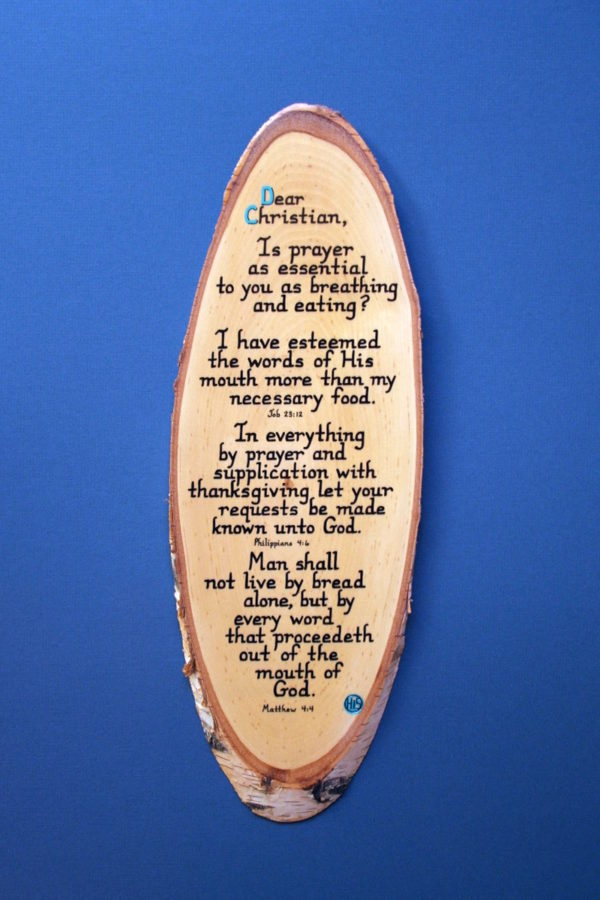 Dear
Christian,
Is prayer
as essential
to you as breathing
and eating?
I have esteemed
the words of His
mouth more than my
necessary food.
Job 23:12
In everything
by prayer and
supplication with
thanksgiving let your
requests be made
known unto God.
Philippians 4:6
Man shall
not live by bread
alone, but by
every word
that proceedeth
out of the
mouth of
God.
Matthew 4:4
HIS